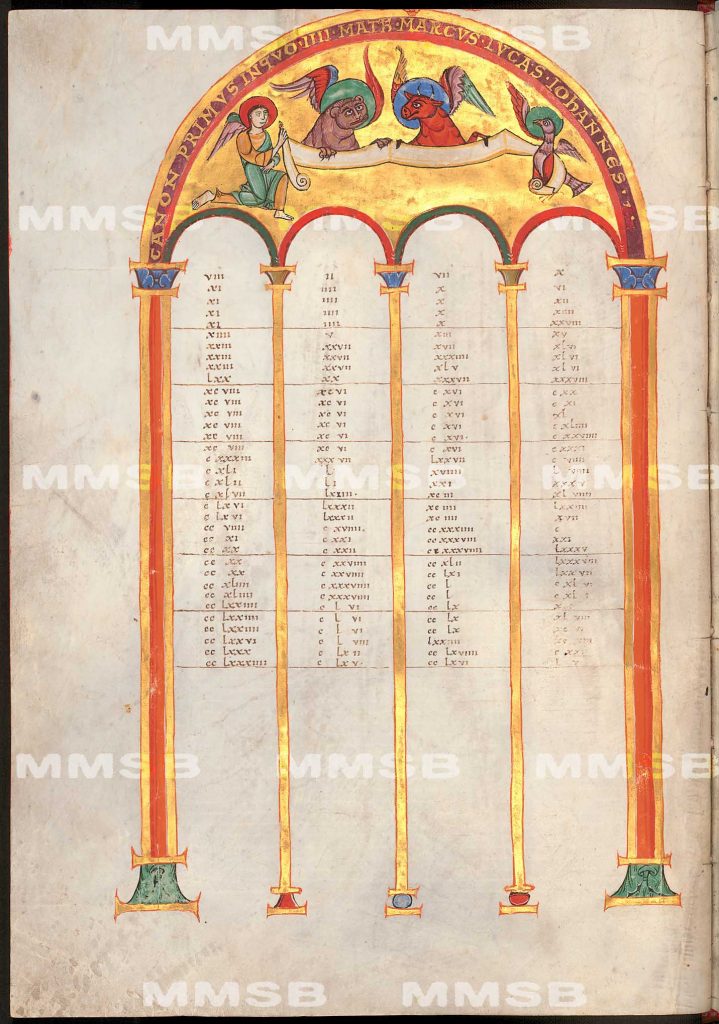 CANON PRIMUS IN QUO IIII MATH MARCUS LUCAS IOHANNES
viii ii vii x
xi iiii x vi
xi iiii x xii
xi iiii x xiiii
xi iiii x xxviii
xiiii v xiii xv
xxiii xxvii xvii xlvi
xxiii xxvii xxxiiii xlvi
xxiii xxvii xlv xlvi
lxx xx xxxvii xxxviii
xcviii xcvi cxvi cxx
xcviii xcvi cxvi cxi
xcviii xcvi cxvi xl
xcviii xcvi cxvi cxliiii
xcviii xcvi cxvi. cxxviiii
xcviii xcvi cxvi
cxxxiii xxxvii lxxvii
cxli l xviiii
cxlii li xxi
cxlvii lxiiii. xciii
clxvi lxxxii xciiii
clxvi lxxxii xciiii xvii
ccviiii cxviiii. ccxxxiiii c
ccxi cxxi ccxxxviii xxi
ccxx cxxii ccxxxviiii lxxxv
ccxx cxxviiii ccxlii
ccxx cxxviiii cclxi
ccxliiii cxxxviiii ccl
ccxliiii cxxxviiii ccl
cclxxiiii clvi cclx
cclxxiiii clvi cclx
cclxxiiii clvi cclx
cclxxvi clviii lxxiiii
cclxxx clxii cclxviiii
cclxxxiiii clxv. cclxvi